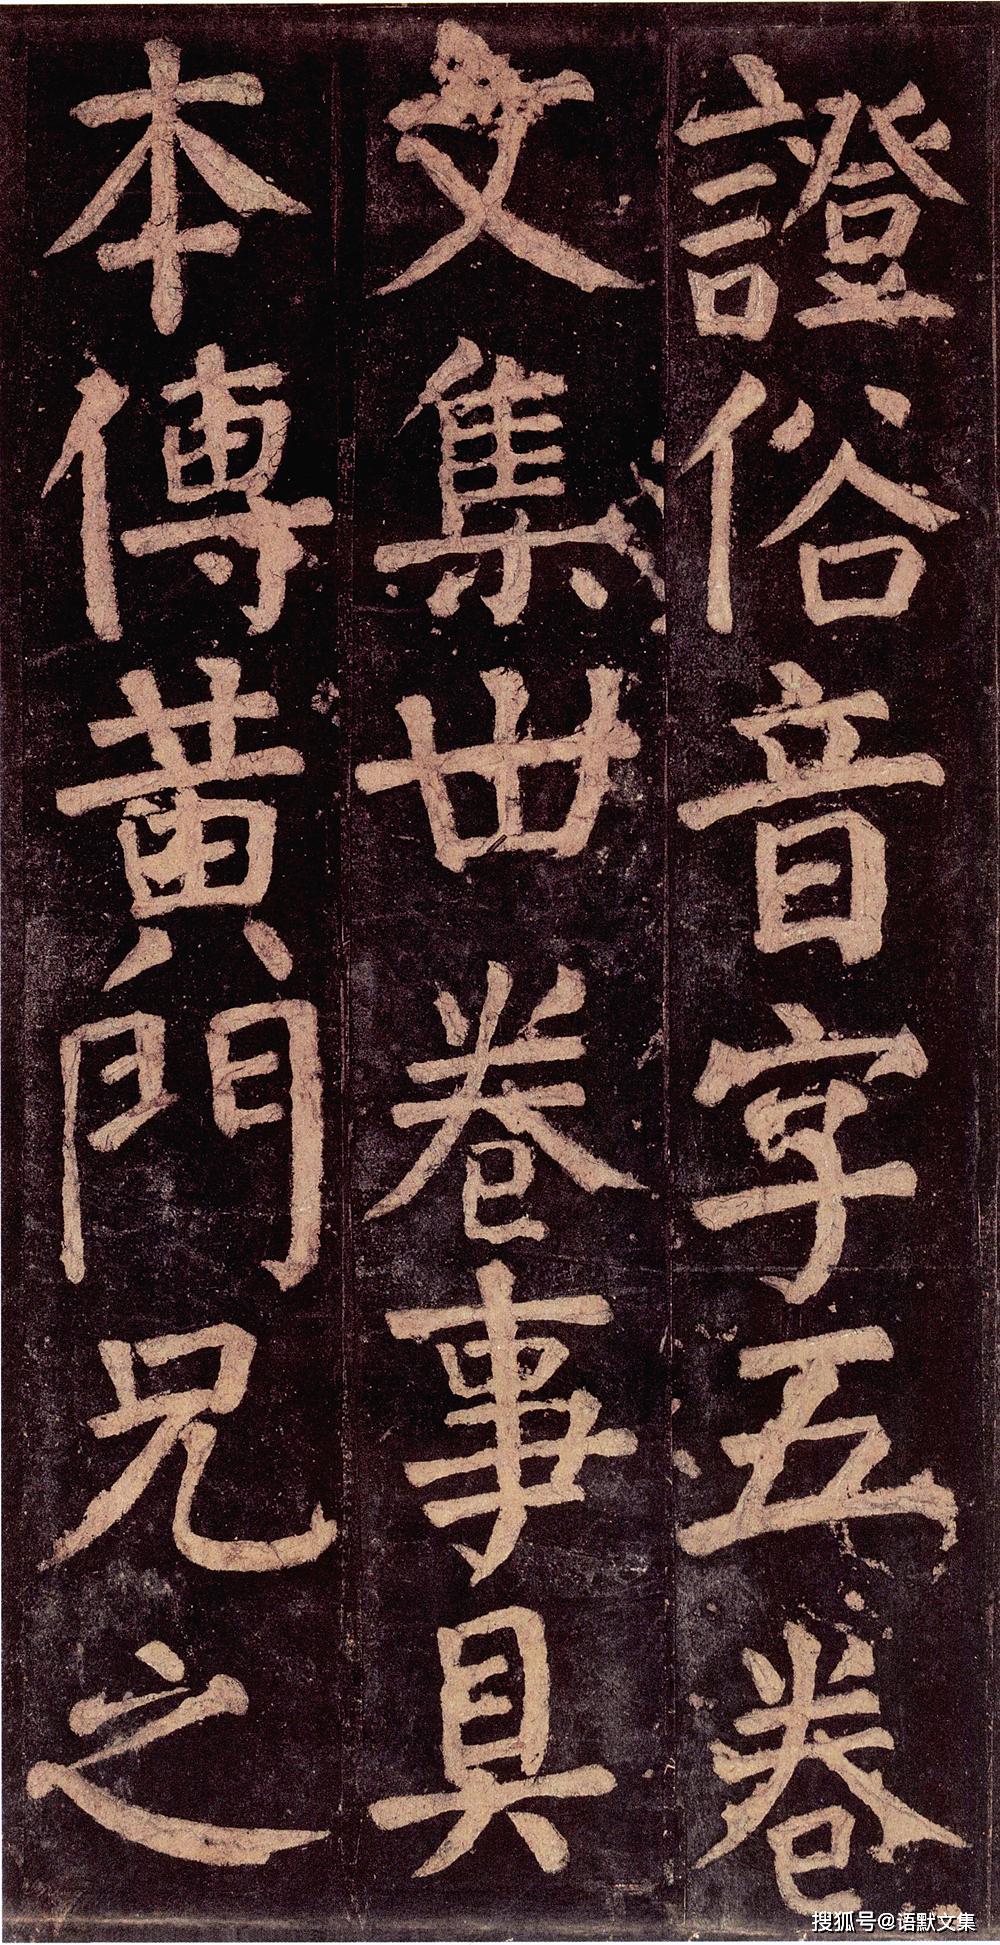 證俗音字五卷
文集丗卷事具
本傳黃門兄之
搜狐号@语默文集